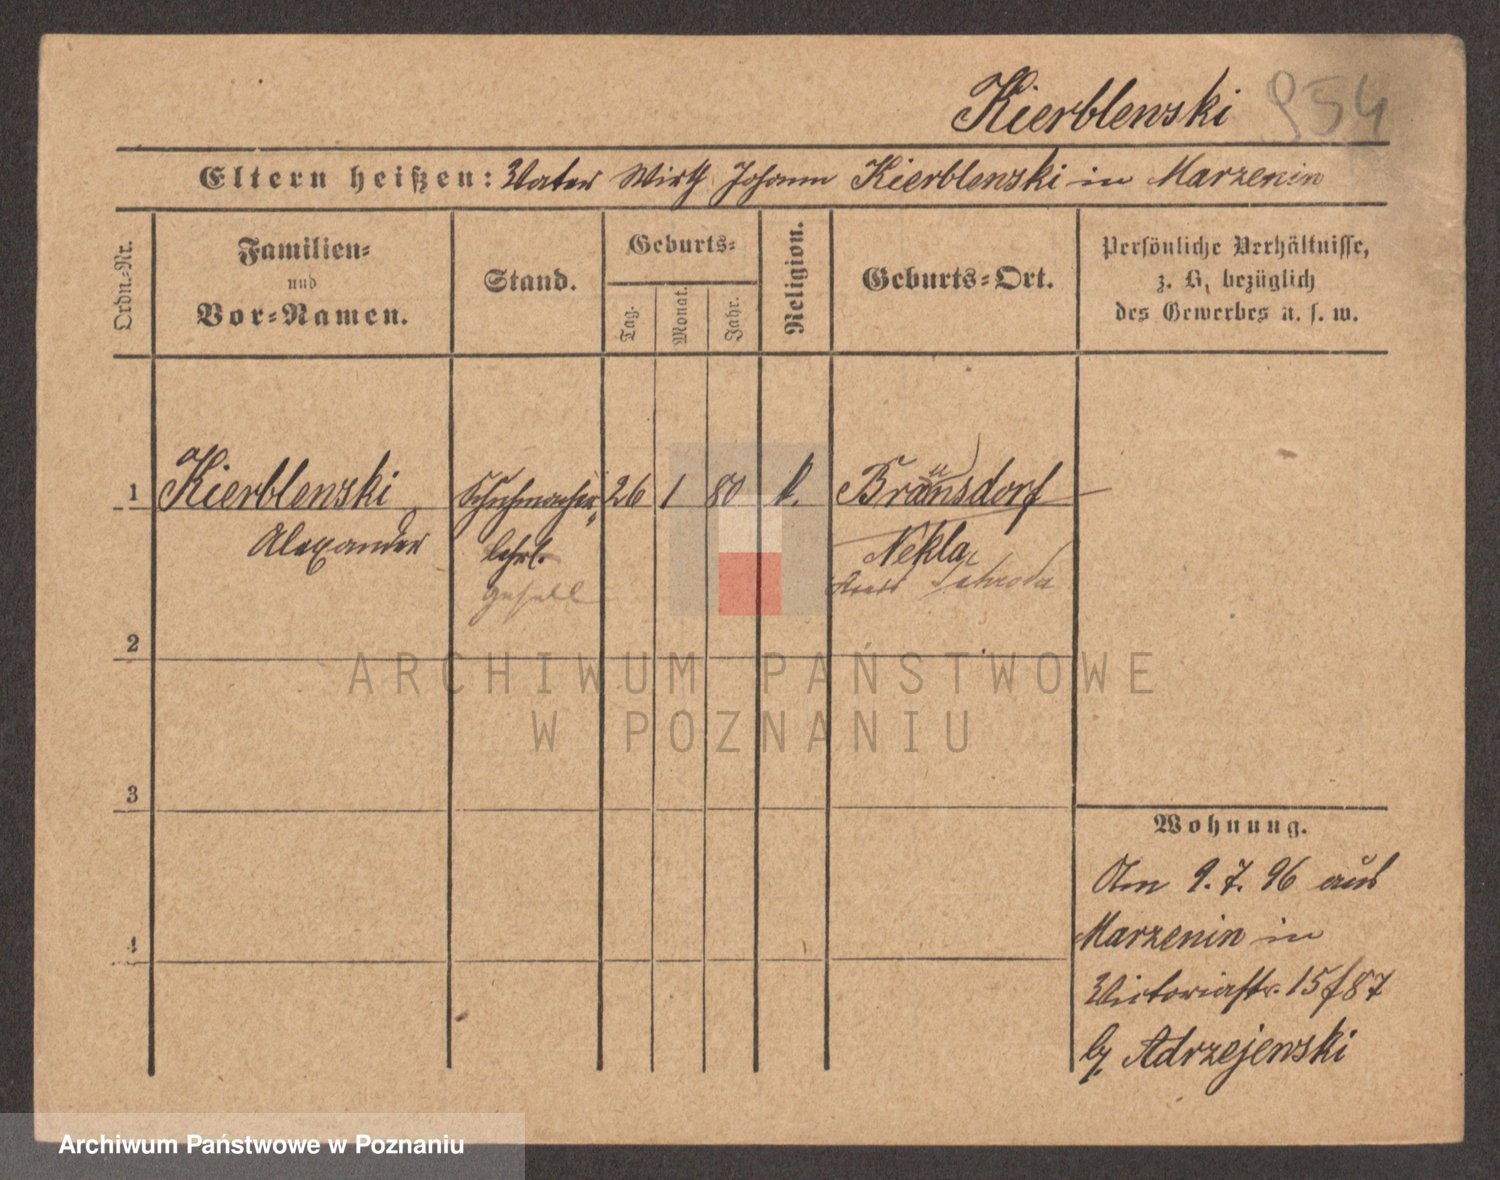 Kierblewski 954
Eltern heißen: Vater Wirth Johann Kierblewski in Marzenin
Ordn.-Nr.
Familien-
und
Vor-Namen.
Stand.
Geburts-
Tag.
Monat.
Jahr.
Religion.
Geburts-Ort.
Persönliche Verhältnisse,
z. B. bezüglich
des Gewerbes u. s. w.
1 Kierblewski Schuhmacher 26 1 80 k. Bränsdorf
Alexander lehrl. Nekla
Gesell Kreis Schroda
2
3
4
Wohnung.
Am 9.7.96 aus
Marzenin in
Victoriastr. 15/87
by Adrzejewski
ARCHIWUM PAŃSTWOWE
W POZNANIU
Archiwum Państwowe w Poznaniu